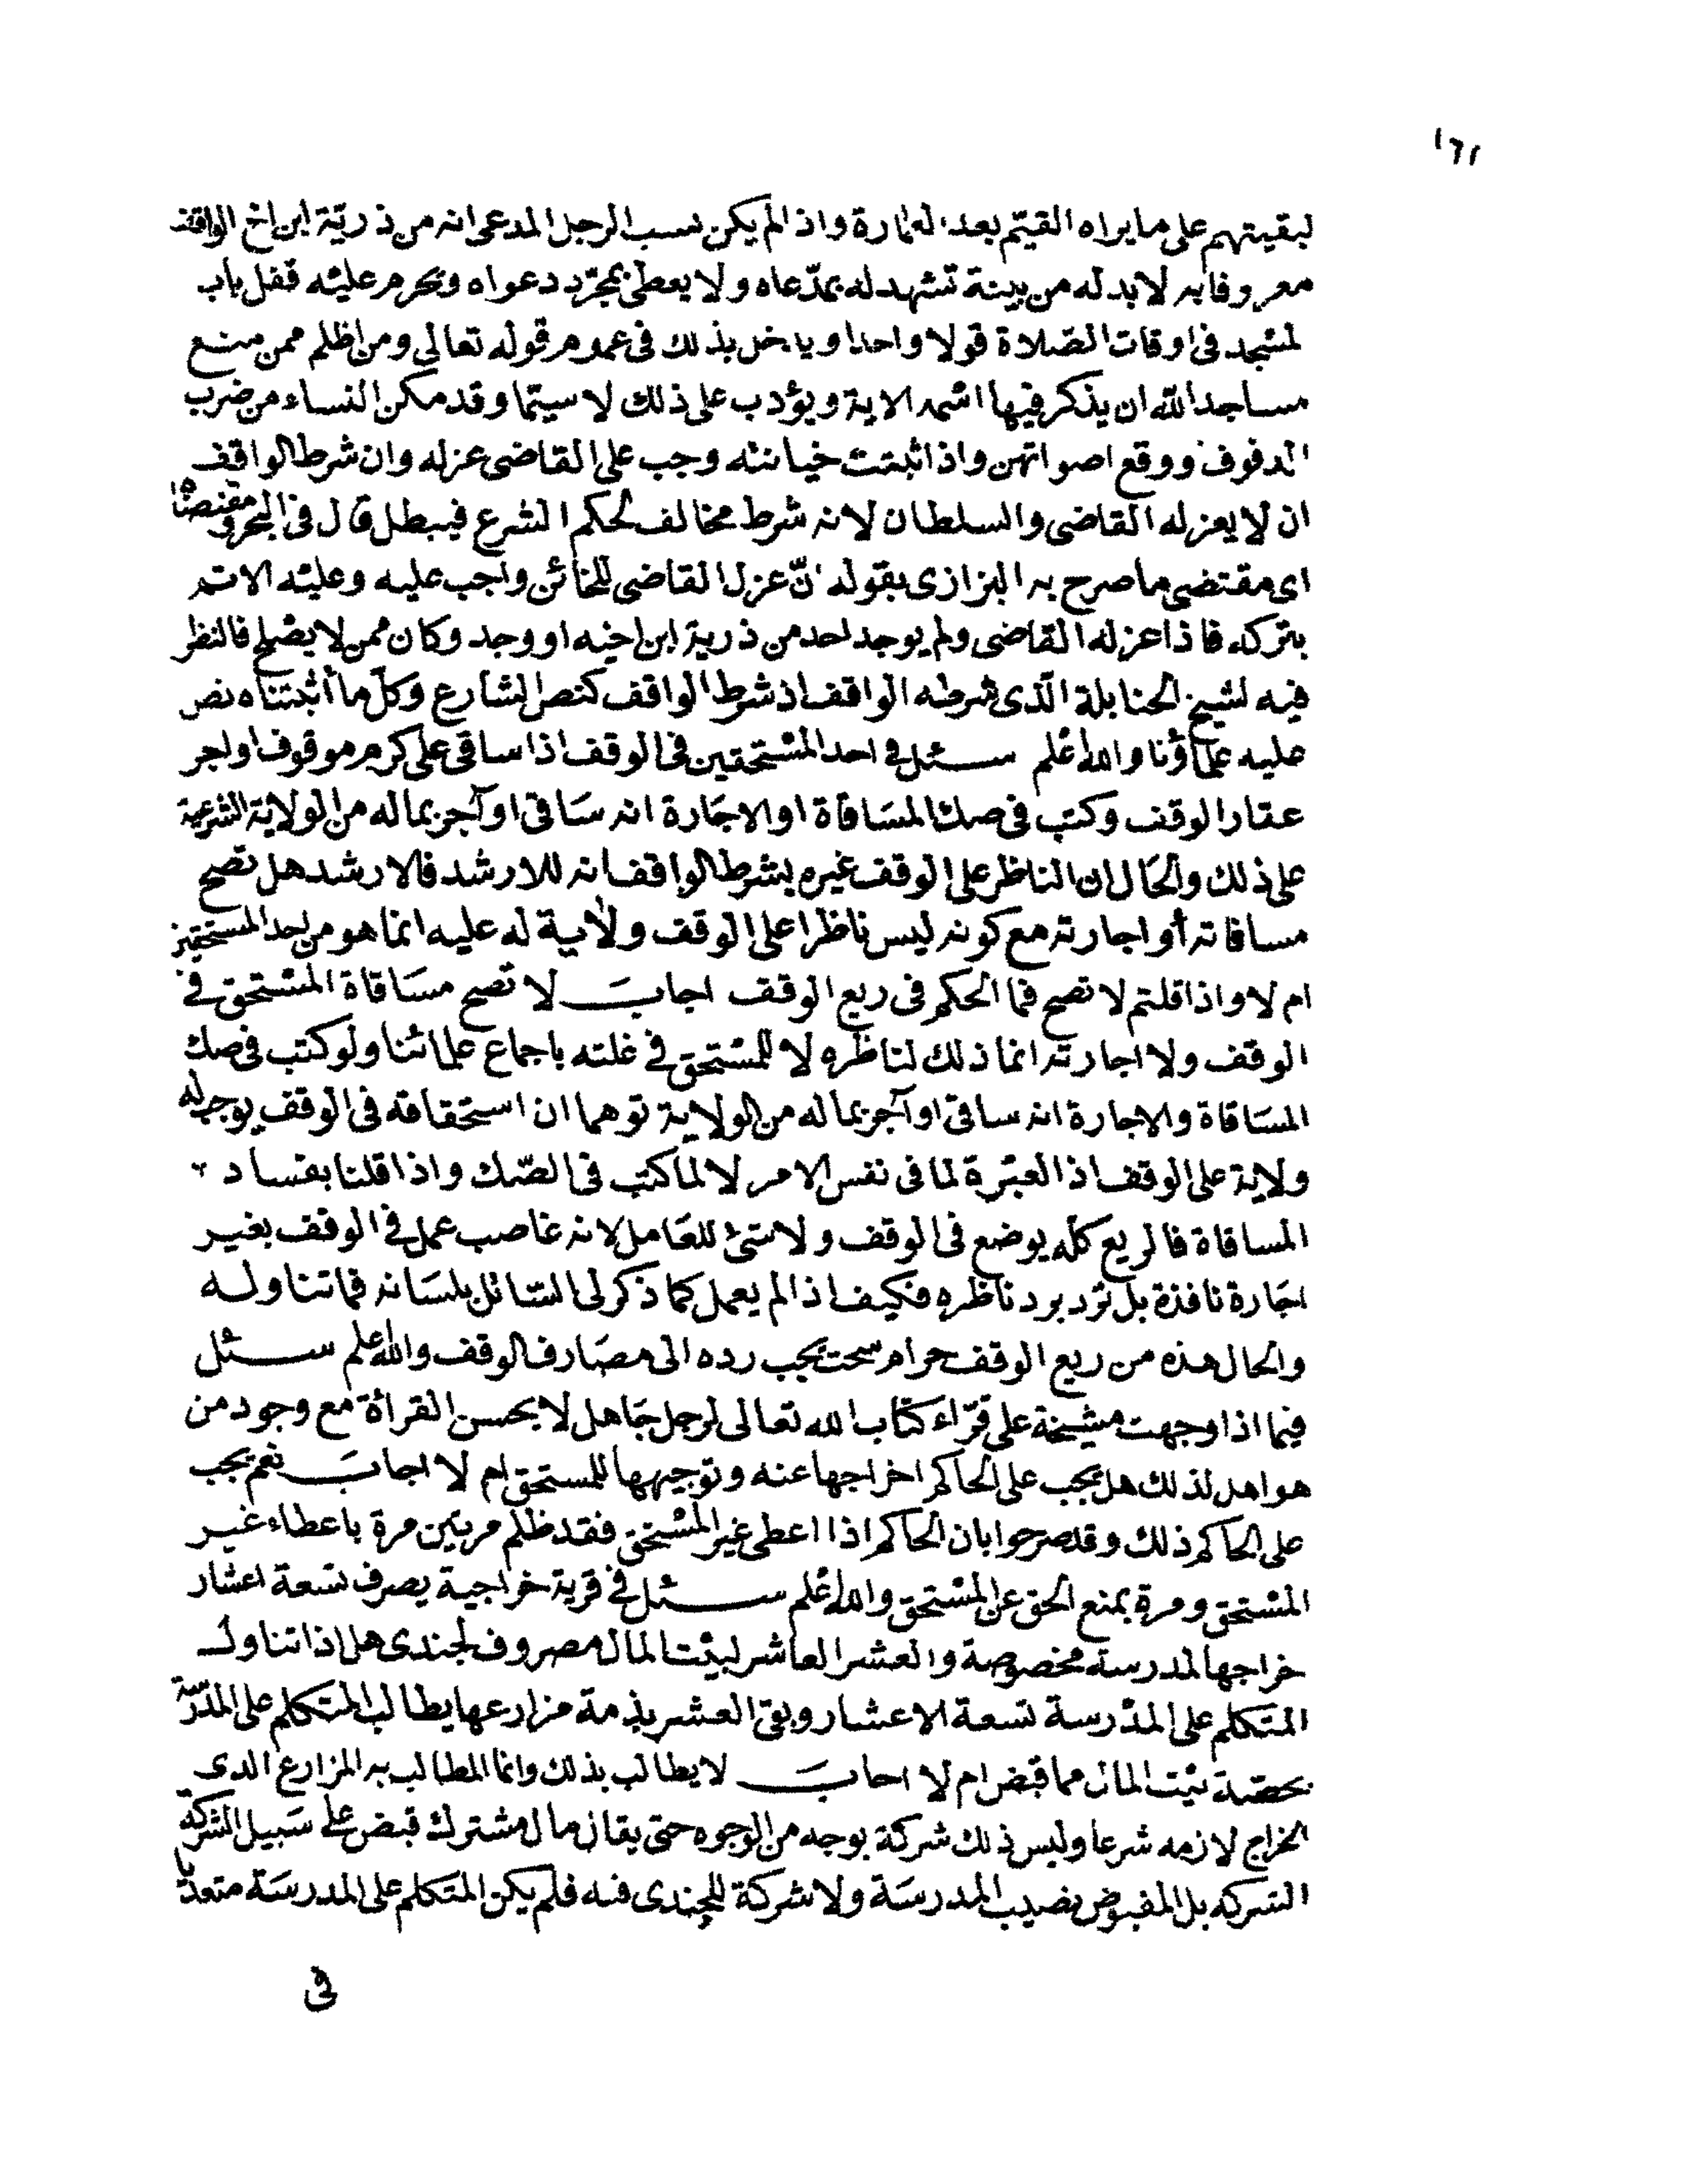 ١٦١
لبقيتهم على ما يراه القيّم بعد العمارة واذا لم يكن نسب الرجل المدعى انه من ذريّة ابن اخ الواقف
معروفا به لا بد له من بينة تشهد له بمدّعاه ولا يعطى بمجرّد دعواه ويحرم عليه قفل باب
لمسجد فى اوقات الصّلاة قولا واحدا ويدخل بذلك فى عموم قوله تعالى ومن اظلم ممن منع
مساجد الله ان يذكر فيها اسمه الاية ويؤدب على ذلك لا سيّما وقد مكن النساء من ضرب
الدفوف ووقع اصواتهن واذا ثبتت خيانته وجب على القاضى عزله وان شرط الواقف
ان لا يعزله القاضى والسلطان لانه شرط مخالف لحكم الشرع فيبطل قال فى البحر فى مقتضاه
اى مقتضى ما صرح به البزازى بقوله انّ عزل القاضى للخائن واجب عليه وعليه الاثم
بتركه فاذا عزله القاضى ولم يوجد احد من ذرية ابن اخيه او وجد وكان ممن لا يصلح فالنظر
فيه لشيخ الحنابلة الّذى شرطه الواقف اذ شرط الواقف كنص الشارع وكلّ ما أثبتناه نص
عليه علماؤنا والله اعلم سئل فى احد المستحقين فى الوقف اذا ساقى على كرم موقوف او اجر
عقار الوقف وكتب فى صك المساقاة او الاجارة انه ساقى او آجر بما له من الولاية الشرعية
على ذلك والحال ان الناظر على الوقف غيره بشرط الواقف انه للارشد فالارشد هل تصح
مساقاته أو اجارته مع كونه ليس ناظرا على الوقف ولا ية له عليه انما هو من احد المستحقين
ام لا واذا قلتم لا تصح فما الحكم فى ريع الوقف اجاب لا تصح مساقاة المستحق فى
الوقف ولا اجارته انما ذلك لناظره لا للمستحق فى غلته باجماع علمائنا ولو كتب فى صك
المساقاة والاجارة انه ساقى او آجر بما له من الولاية توهما ان استحقاقه فى الوقف يوجب له
ولاية على الوقف اذ العبرة لما فى نفس الامر لا لما كتب فى الصّك واذا قلنا بفساد
المساقاة فالريع كله يوضع فى الوقف ولا شئ للعامل لانه غاصب عمل فى الوقف بغير
اجارة نافذة بل ترد برد ناظره فكيف اذا لم يعمل كما ذكر لى السّائل بلسانه فما تناوله
والحال هذه من ريع الوقف حرام سحت يجب رده الى مصارف الوقف والله اعلم سئل
فيما اذا وجهت مشيخة على قرّاء كتاب الله تعالى لرجل جاهل لا يحسن القرأة مع وجود من
هو اهل لذلك هل يجب على الحاكم اخراجها عنه وتوجيهها للمستحق ام لا اجاب نعم يجب
على الحاكم ذلك وقد صرحوا بان الحاكم اذا اعطى غير المستحق فقد ظلم مرتين مرة باعطاء غير
المستحق ومرة بمنع الحق عن المستحق والله اعلم سئل فى قرية خراجية يصرف تسعة اعشار
خراجها لمدرسة مخصوصة والعشر العاشر لبيت المال مصروف لجندى هل اذا تناول
المتكلم على المدرسة تسعة الاعشار وبقى العشر بذمة مزارعها يطالب المتكلم على المدرسة
بحصة بيت المال مما قبض ام لا اجاب لا يطالب بذلك وانما المطالب به المزارع الذى
الخراج لازمه شرعا وليس ذلك شركة بوجه من الوجوه حتى يقال مال مشترك قبض على سبيل الشركة
الشركه بل المقبوض نصيب المدرسة ولا شركة للجندى فيه فلم يكن المتكلم على المدرسة متعديا
فى